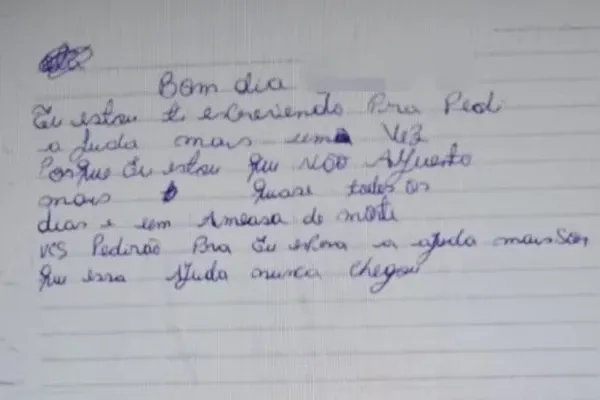 Bom dia
Eu estou te escrevendo Pra Pedi
a Juda mais uma Vez
Porque Eu estou que NÃO AGuento
mais quase todos os
dias e um Ameasa de morte
vcs Pedirão Pra Eu espera a ajuda mais Son
que essa AJuda nunca chegou